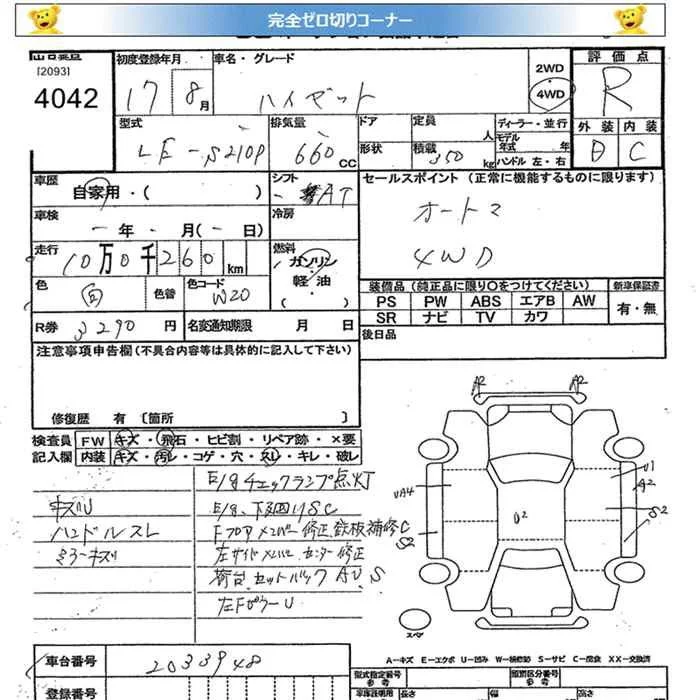 完全ゼロ切りコーナー
[2093]
4042
初度登録年月
17
8月
車名・グレード
ハイゼット
2WD
4WD
評価点
R
型式
LE-S210P
排気量
660 CC
ドア
形状
定員
人
積載
350 kg
ディーラー・並行
モデル年式 年
ハンドル 左・右
外装
内装
D
C
車歴
自家用・( )
シフト
AT
セールスポイント(正常に機能するものに限ります)
オートマ
4WD
車検
- 年 - 月( - 日)
冷房
走行
10万0千260 km
燃料
ガソリン
軽油・
( )
色
白
色替
色コード
W20
装備品(純正品に限り○をつけてください)
新車保証書
PS PW ABS エアB AW
SR ナビ TV カワ
有・無
R券
円
名変通知期限 月 日
後日品
注意事項申告欄(不具合内容等は具体的に記入して下さい)
修復歴 有〔箇所 〕
検査員 FW キズ・飛石・ヒビ割・リペア跡・×要
記入欄 内装 キズ・汚レ・コゲ・穴・スレ・キレ・破レ
E/gチェックランプ点灯
キズU
E/g、下廻りSC
ハンドルスレ
Fフロアメンバー修正、鉄板補修C
ミラーキズ
左サイドメンバーセンター修正
荷台、セットバックAU、S
左FピラーU
A2
A2
U1
A2
UA4
U2
S2
S2
スペア
車台番号
2033948
A-キズ E-エクボ U-凹み W-補修跡 S-サビ C-腐食 XX-交換済
登録番号
型式指定番号
参考
類別区分番号
参考
車庫証明用
長さ
幅
高さ